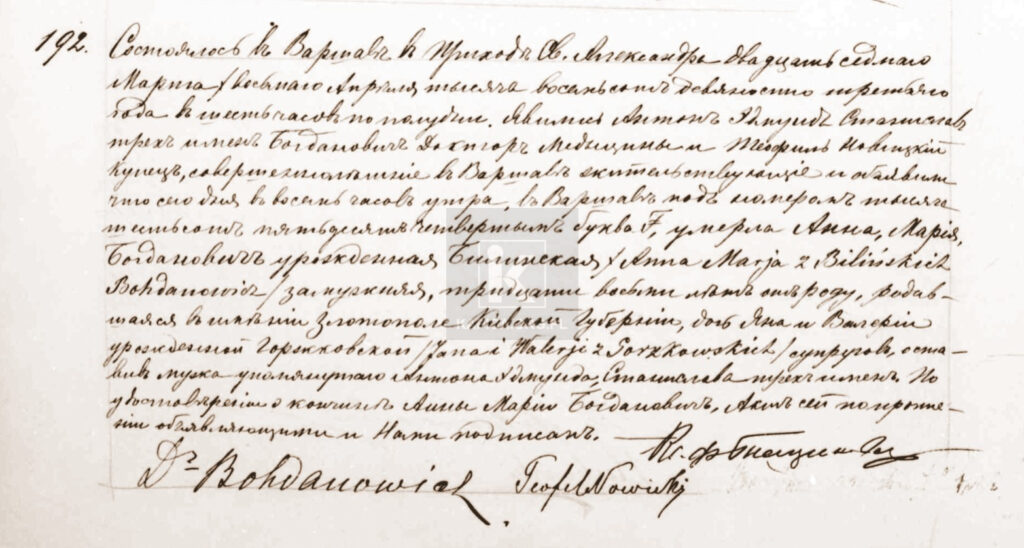 192. Состоялось въ Варшавѣ въ Приходѣ Св. Александра двадцать седмаго
Марта / восьмаго Апрѣля тысяча восемьсотъ девяносто третьяго
года въ шесть часовъ по полудни. Явились Антонъ Эдмундъ Станиславъ
трехъ именъ Богдановичъ Докторъ Медицины и Теофиль Новицкій
Купецъ, совершеннолѣтніе въ Варшавѣ жительствующіе и объявили
что сего дня въ восемь часовъ утра, въ Варшавѣ подъ номеромъ тысяча
шестьсотъ пятьдесятъ четвертымъ буква F, умерла Анна, Марія,
Богдановичъ урожденная Билинская / Anna Marja z Bilińskich
Bohdanowicz / замужняя, тридцати восьми лѣтъ отъ роду, родив-
шаяся въ имѣніи Златополе Кіевской Губерніи, дочь Яна и Валеріи
урожденной Горжковской / Jana i Walerji z Gorzkowskich / супруговъ, оста-
вивъ мужа упомянутаго Антона Эдмунда, Станислава трехъ именъ. По
удостовѣреніи о кончинѣ Анны Маріи Богдановичъ, Актъ сей по проте-
ніи объявляющими и Нами подписанъ.
Dr Bohdanowicz Teofil Nowicki